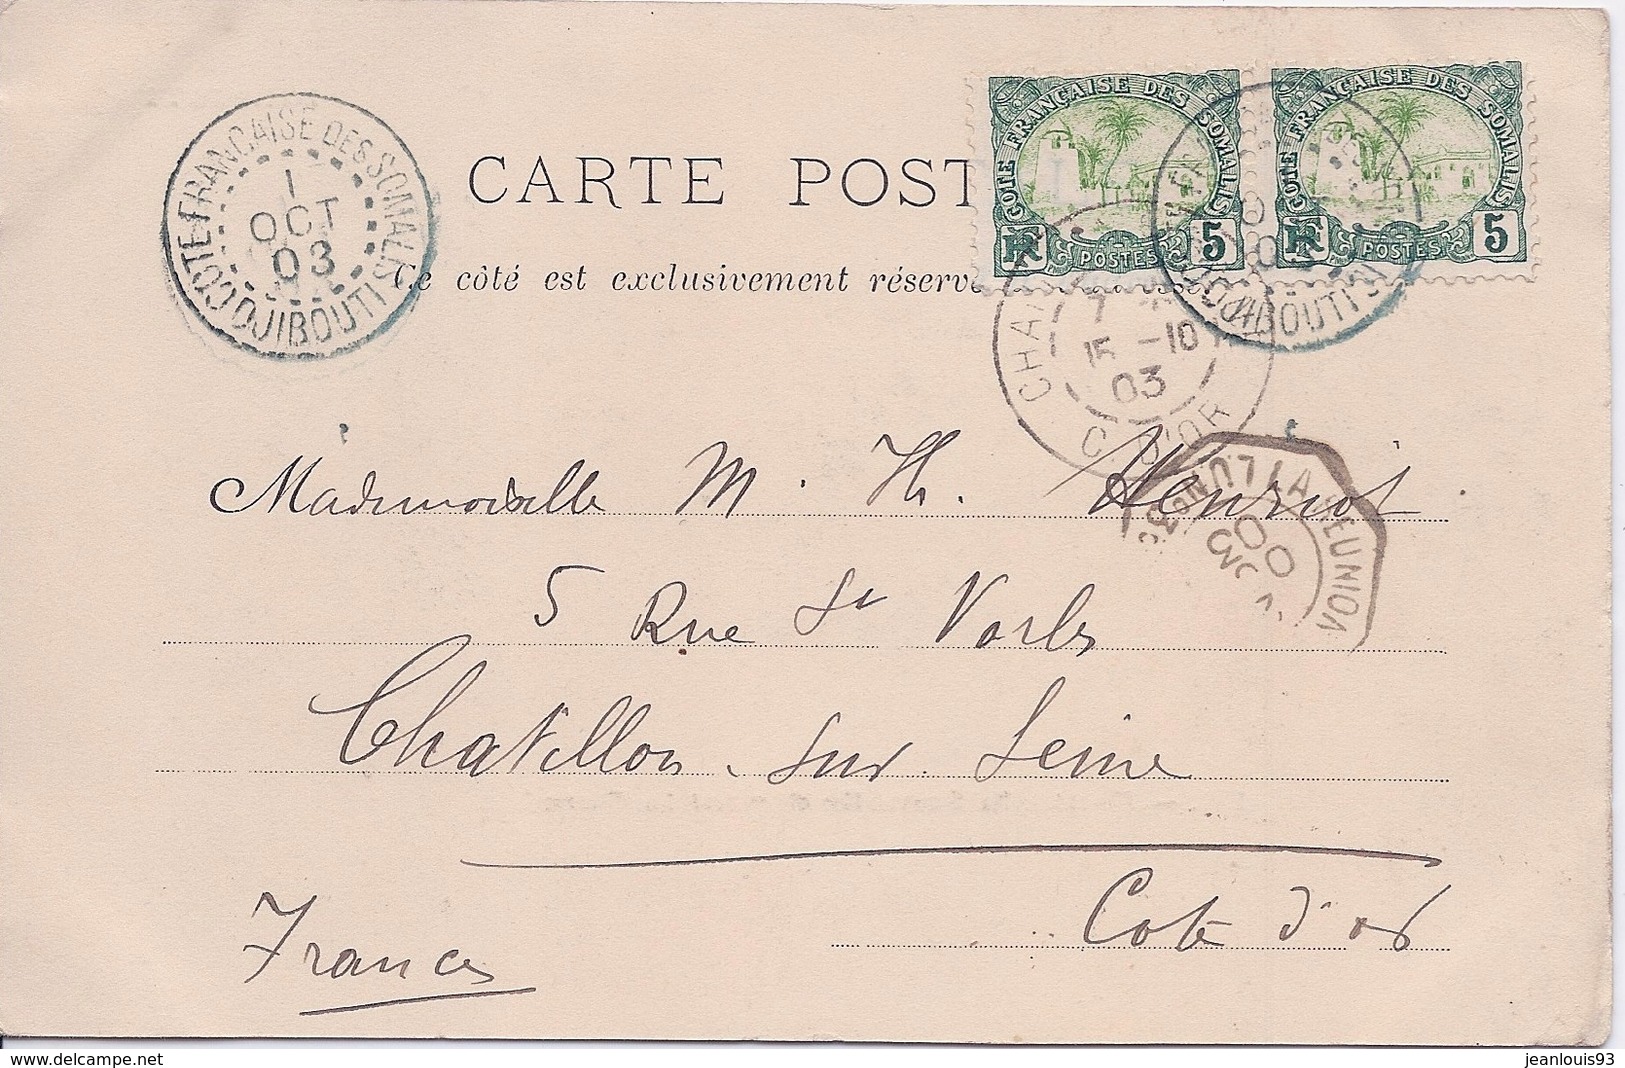 CARTE POST
Ce côté est exclusivement réserv
COTE FRANÇAISE DES SOMALIS
RF POSTES 5
COTE FRANÇAISE DES SOMALIS
RF POSTES 5
COTE FRANÇAISE DES SOMALIS
1
OCT
03
DJIBOUTI
DJIBOUTI
CHA
7
15 -10
03
C. D'OR
LA REUNION
L.U. N° 3
OCT
03
Mademoiselle M. Th. Henriot
5 Rue St Vorles
Chatillon sur Seine
Cote d'or
France
jeanlouis93